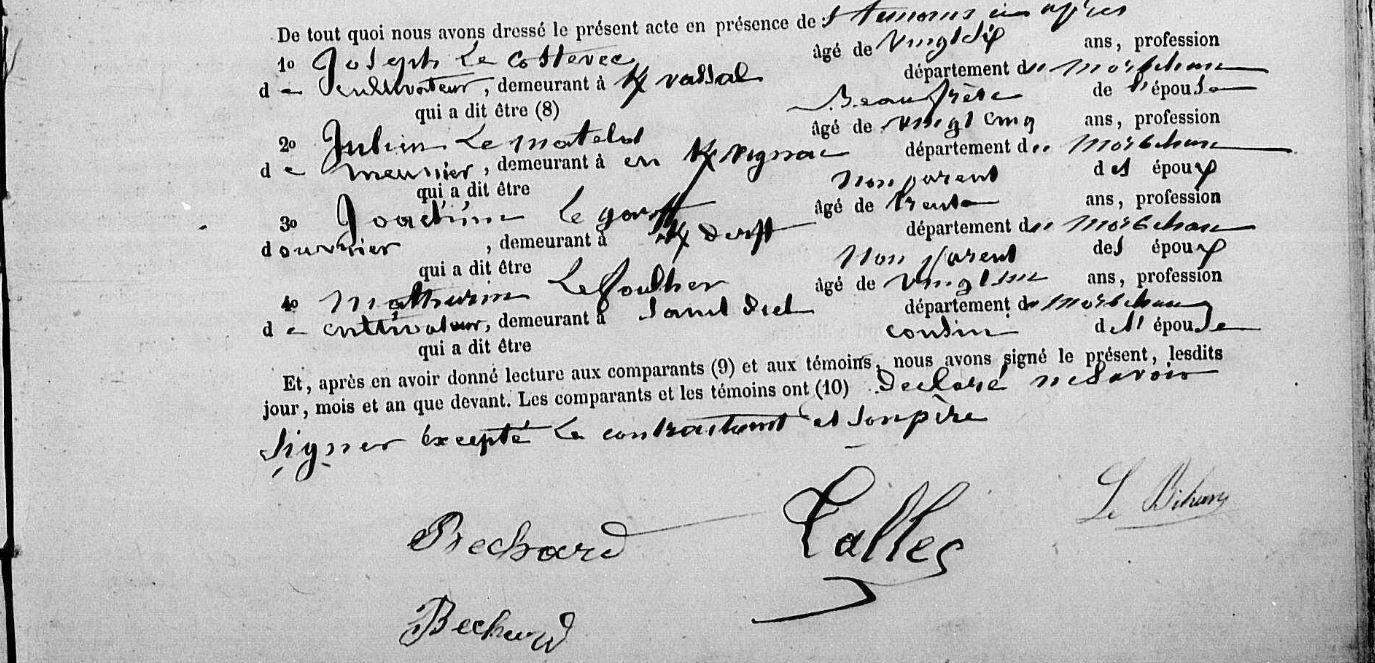 De tout quoi nous avons dressé le présent acte en présence de 4 témoins ci après
1º Joseph Le Cossevec, âgé de Vingt six ans, profession
de Cultivateur, demeurant à Kvassal département du Morbihan
qui a dit être (8) Beau frère de l'épouse
2º Julien Le matelot âgé de vingt cinq ans, profession
de meunier, demeurant à en Kvignac département du Morbihan
qui a dit être Non parent des époux
3º Joachim Le goff âgé de trente ans, profession
d'ouvrier, demeurant à département du Morbihan
qui a dit être Non parent des époux
4º Mathurin Le foulher âgé de Vingt ans, profession
de cultivateur, demeurant à département du Morbihan
qui a dit être cousin de l'épouse
Et, après en avoir donné lecture aux comparants (9) et aux témoins, nous avons signé le présent, lesdits
jour, mois et an que devant. Les comparants et les témoins ont (10) Déclaré ne Savoir
Signer excepté Le contractant et Son père
Bechard Talles Le Bihan
Bechard